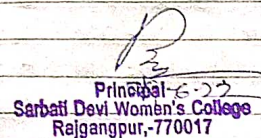 Principal
Sarbati Devi Women's College
Rajgangpur,-770017